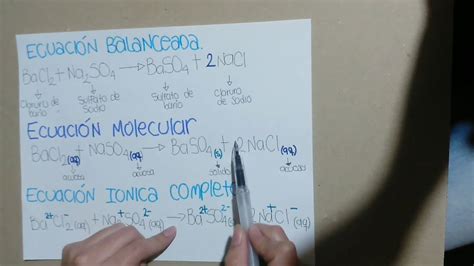 ECUACIÓN BALANCEADA.
BaCl2 + Na2SO4 → BaSO4 + 2NaCl
Cloruro de bario Sulfato de sodio Sulfato de bario Cloruro de sodio
ECUACIÓN MOLECULAR
BaCl2(aq) + NaSO4(aq) → BaSO4(s) + 2NaCl(aq)
acuosa acuosa solido acuosa
ECUACIÓN IONICA COMPLETA
Ba2+Cl2-(aq) + Na+SO42-(aq) → Ba2+SO42-(s) 2Na+Cl-(aq)